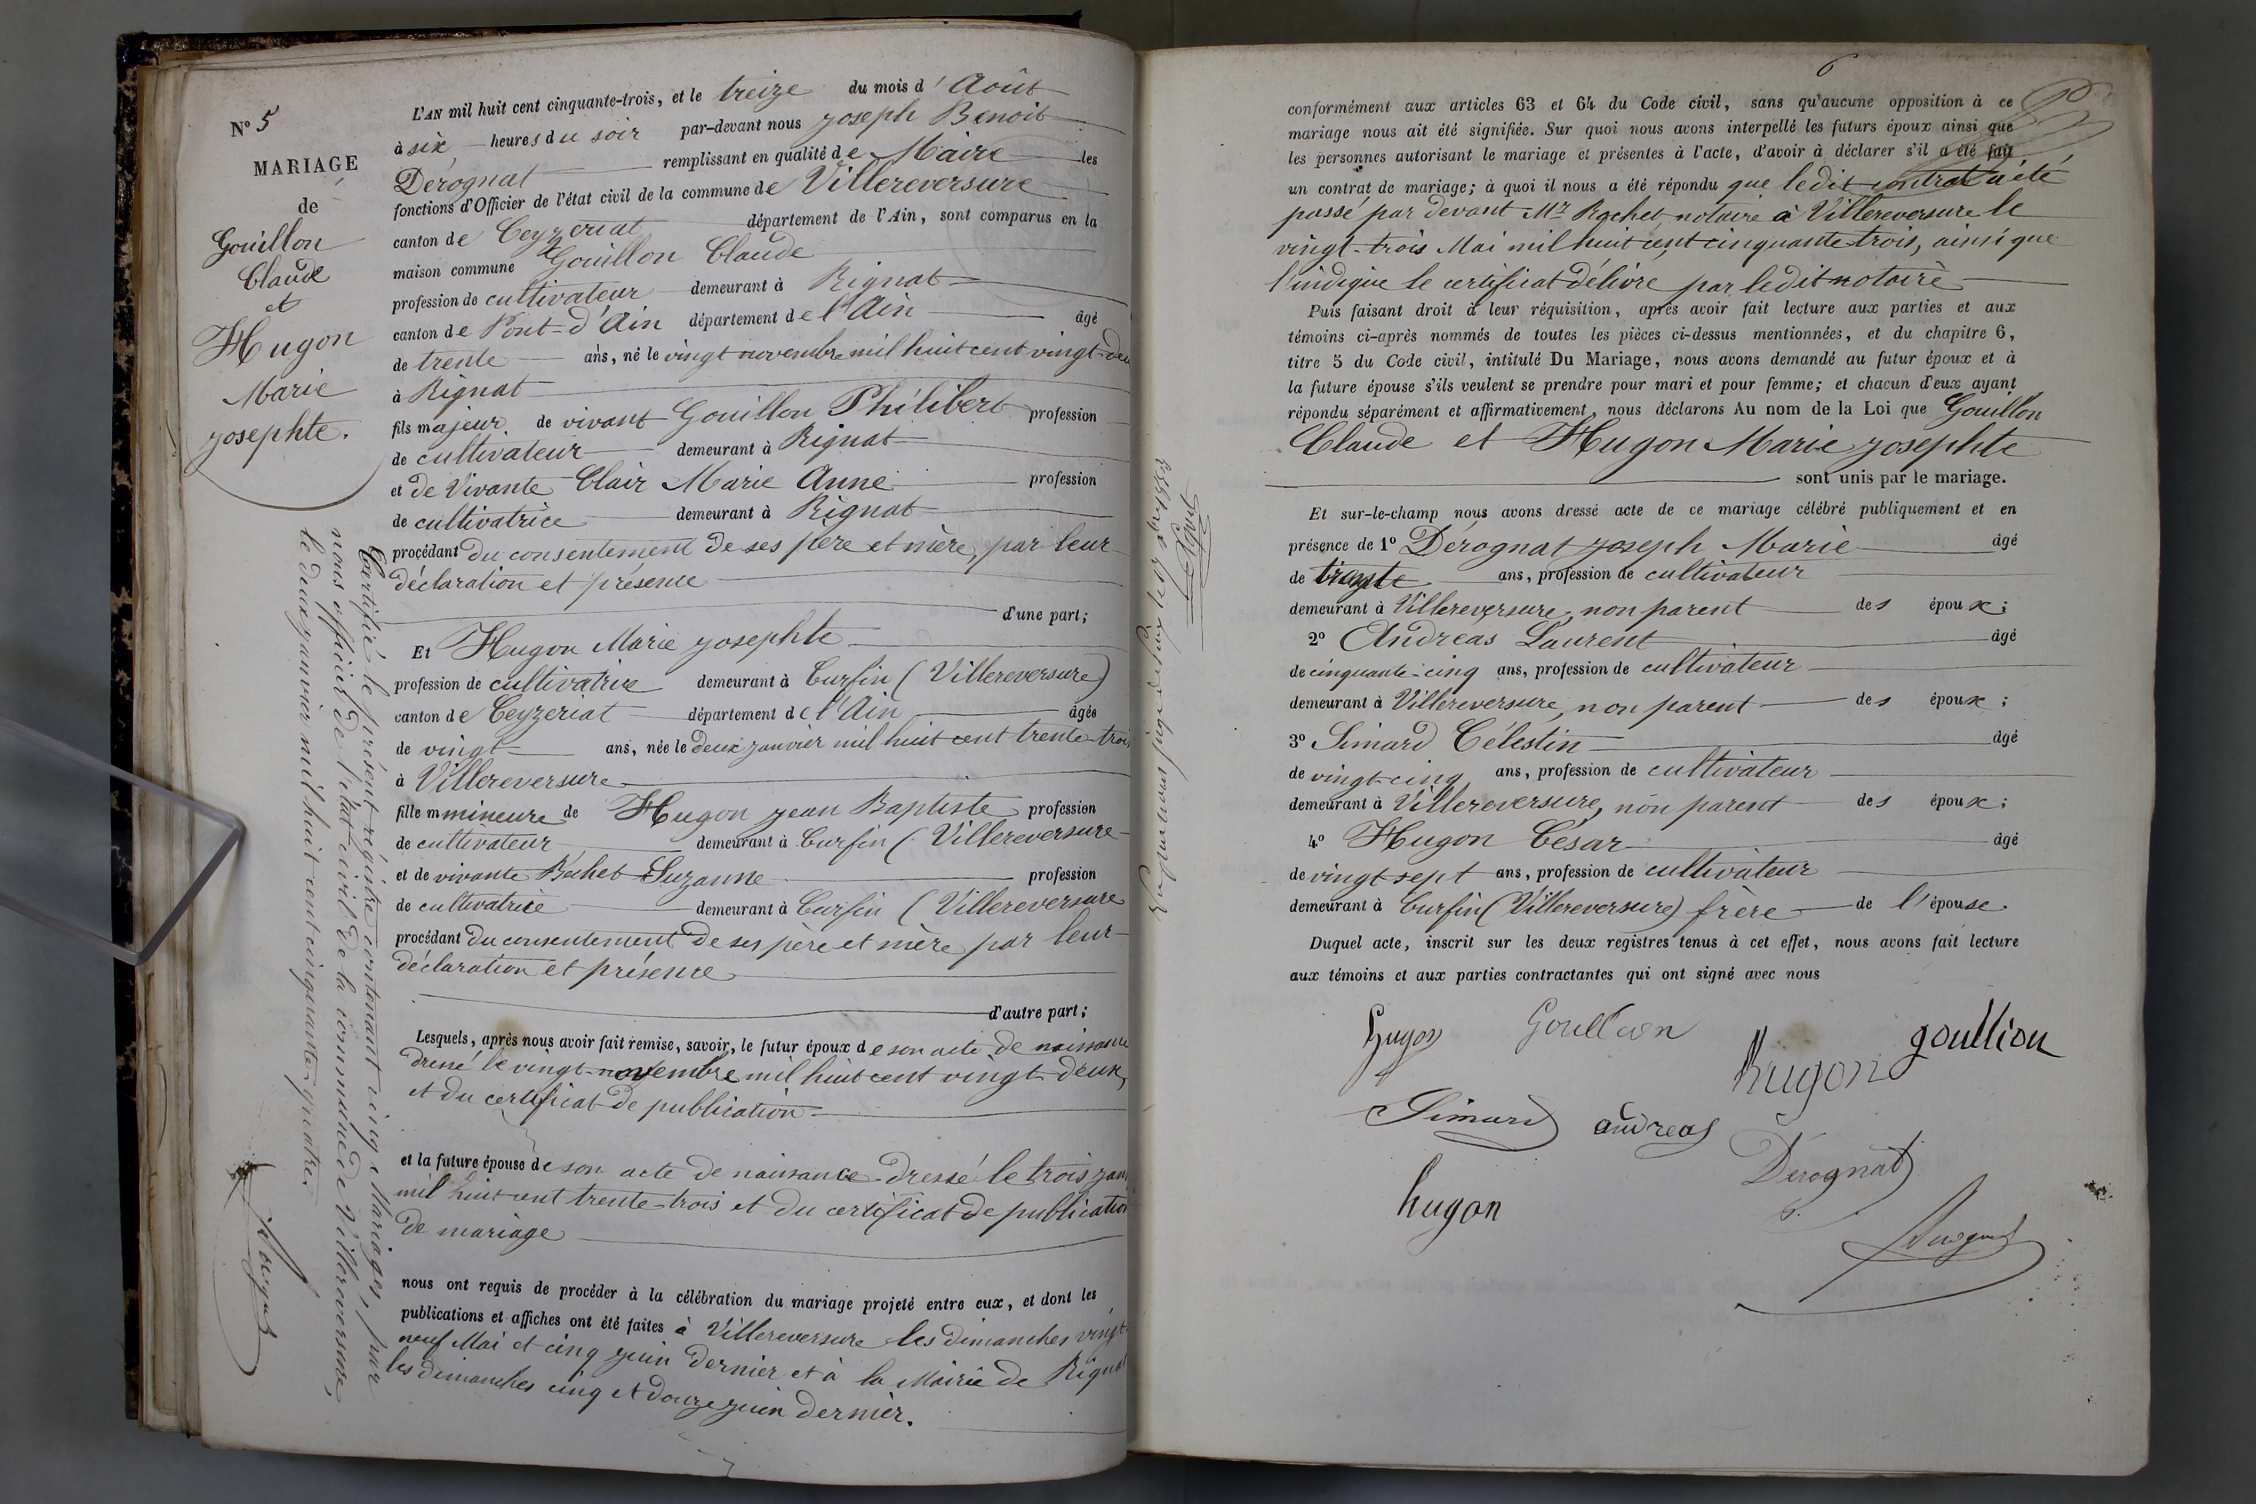 N° 5
MARIAGE
de
Gouillon
Claude
et
Hugon
Marie
Josephte.
L'AN mil huit cent cinquante-trois, et le treize du mois d'Août
à six heures du soir par-devant nous Joseph Benoit
Dérognat remplissant en qualité de Maire les
fonctions d'Officier de l'état civil de la commune de Villereversure
canton de Ceyzeriat département de l'Ain, sont comparus en la
maison commune Gouillon Claude
profession de cultivateur demeurant à Rignat
canton de Pont-d'Ain département de l'Ain âgé
de trente ans, né le vingt novembre mil huit cent vingt-deu
à Rignat
fils majeur de vivant Gouillon Philibert profession
de cultivateur demeurant à Rignat
et de Vivante Clair Marie Anne profession
de cultivatrice demeurant à Rignat
procédant du consentement de ses père et mère, par leur
déclaration et présence
d'une part;
Et Hugon Marie Josephte
profession de cultivatrice demeurant à Curfin (Villereversure)
canton de Ceyzeriat département de l'Ain âgée
de vingt ans, née le deux janvier mil huit cent trente-trois
à Villereversure
fille mmineure de Hugon Jean Baptiste profession
de cultivateur demeurant à Curfin (Villereversure
et de vivante Suzanne profession
de cultivatrice demeurant à Curfin (Villereversure
procédant du consentement de ses père et mère par leur
déclaration et présence
d'autre part;
Lesquels, après nous avoir fait remise, savoir, le futur époux de son acte de naissance
dressé le vingt-novembre mil huit cent vingt-deux,
et du certificat de publication
et la future épouse de son acte de naissance dressé le trois jan
mil huit cent trente-trois et du certificat de publication
de mariage
nous ont requis de procéder à la célébration du mariage projeté entre eux, et dont les
publications et affiches ont été faites à Villereversure les dimanches vingt-
neuf Mai et cinq juin dernier et à la Mairie de Rignat
les dimanches cinq et douze juin dernier.
Certifié le présent régistre contenant cinq Mariages, par
nous officier de l'état civil de la commune de Villereversure,
le deux janvier mil huit cent cinquante-quatre.
6
conformément aux articles 63 et 64 du Code civil, sans qu'aucune opposition à ce
mariage nous ait été signifiée. Sur quoi nous avons interpellé les futurs époux ainsi que
les personnes autorisant le mariage et présentes à l'acte, d'avoir à déclarer s'il a été fait
un contrat de mariage; à quoi il nous a été répondu que ledit contrat a été
passé par devant Mr Rochet notaire à Villereversure le
vingt-trois Mai mil huit cent cinquante trois, ainsi que
l'indique le certificat délivré par ledit notaire
Puis faisant droit à leur réquisition, après avoir fait lecture aux parties et aux
témoins ci-après nommés de toutes les pièces ci-dessus mentionnées, et du chapitre 6,
titre 5 du Code civil, intitulé Du Mariage, nous avons demandé au futur époux et à
la future épouse s'ils veulent se prendre pour mari et pour femme; et chacun d'eux ayant
répondu séparément et affirmativement, nous déclarons Au nom de la Loi que Gouillon
Claude et Hugon Marie Josephte
sont unis par le mariage.
Et sur-le-champ nous avons dressé acte de ce mariage célébré publiquement et en
présence de 1° Dérognat Joseph Marie âgé
de trente ans, profession de cultivateur
demeurant à Villereversure, non parent des époux;
2° Andreas Laurent âgé
de cinquante-cinq ans, profession de cultivateur
demeurant à Villereversure, non parent des époux;
3° Simard Célestin âgé
de vingt-cinq ans, profession de cultivateur
demeurant à Villereversure, non parent des époux;
4° Hugon César âgé
de vingt sept ans, profession de cultivateur
demeurant à Curfin (Villereversure) frère de l'épouse
Duquel acte, inscrit sur les deux registres tenus à cet effet, nous avons fait lecture
aux témoins et aux parties contractantes qui ont signé avec nous
hugon Goullion hugon goullion
Simard andreas Dérognat
hugon